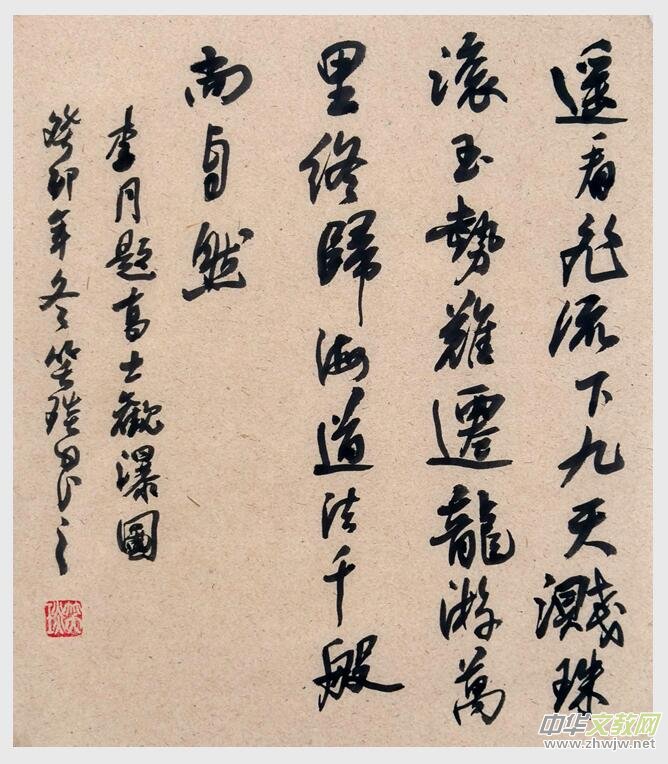 遥看飛流下九天濺珠
滚玉勢難遷龍游萬
里終歸海道法千般
尚自然
李月題高士觀瀑圖
癸卯年冬笑琰之
中华文教网
www.zhwjw.net